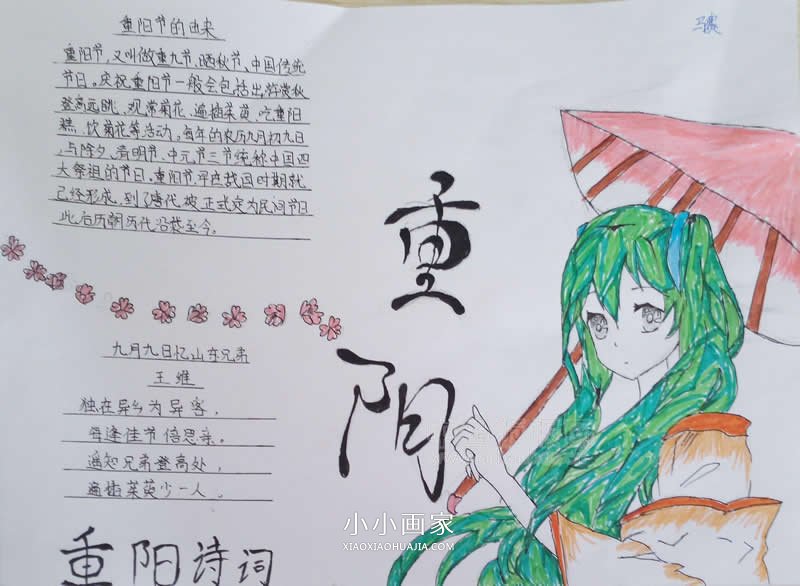 重阳节的由来
重阳节,又叫做重九节、晒秋节、中国传统
节日。庆祝重阳节一般会包括出游赏秋
登高远眺、观赏菊花、遍插茱萸、吃重阳
糕、饮菊花等活动。每年的农历九月初九日
,与除夕、清明节、中元节三节统称中国四
大祭祖的节日。重阳节早在战国时期就
已经形成,到了唐代被正式定为民间节日
此后历朝历代沿袭至今。
重
阳
九月九日忆山东兄弟
王维
独在异乡为异客,
每逢佳节倍思亲。
遥知兄弟登高处,
遍插茱萸少一人。
重阳诗词
小小画家
XIAOXIAOHUAJIA.COM